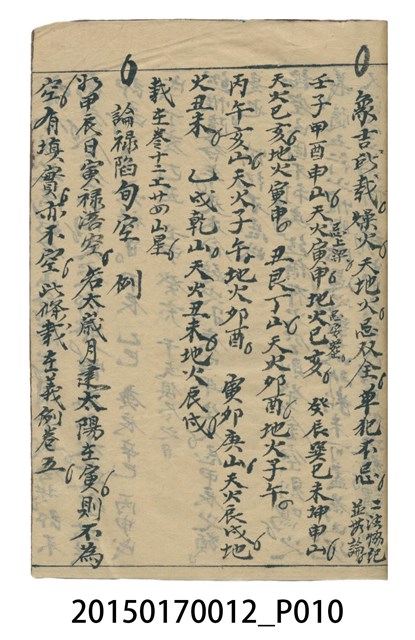 象吉所載燥火天地火忌双全單犯不忌
壬子甲酉申山天火寅申地火巳亥 癸辰巽巳未坤申山
忌上梁
天火巳亥地火寅申 丑艮丁山天火卯酉地火子午
丙午亥山天火子午地火卯酉 寅卯庚山天火辰戌地
火丑未 乙戌乾山天火丑未地火辰戌
載在卷十二
論祿陷旬空 例
如甲辰日寅祿落空若太歲月建太陽在寅則不為
空有填實亦不空此條載在義例卷五
20150170012_P010